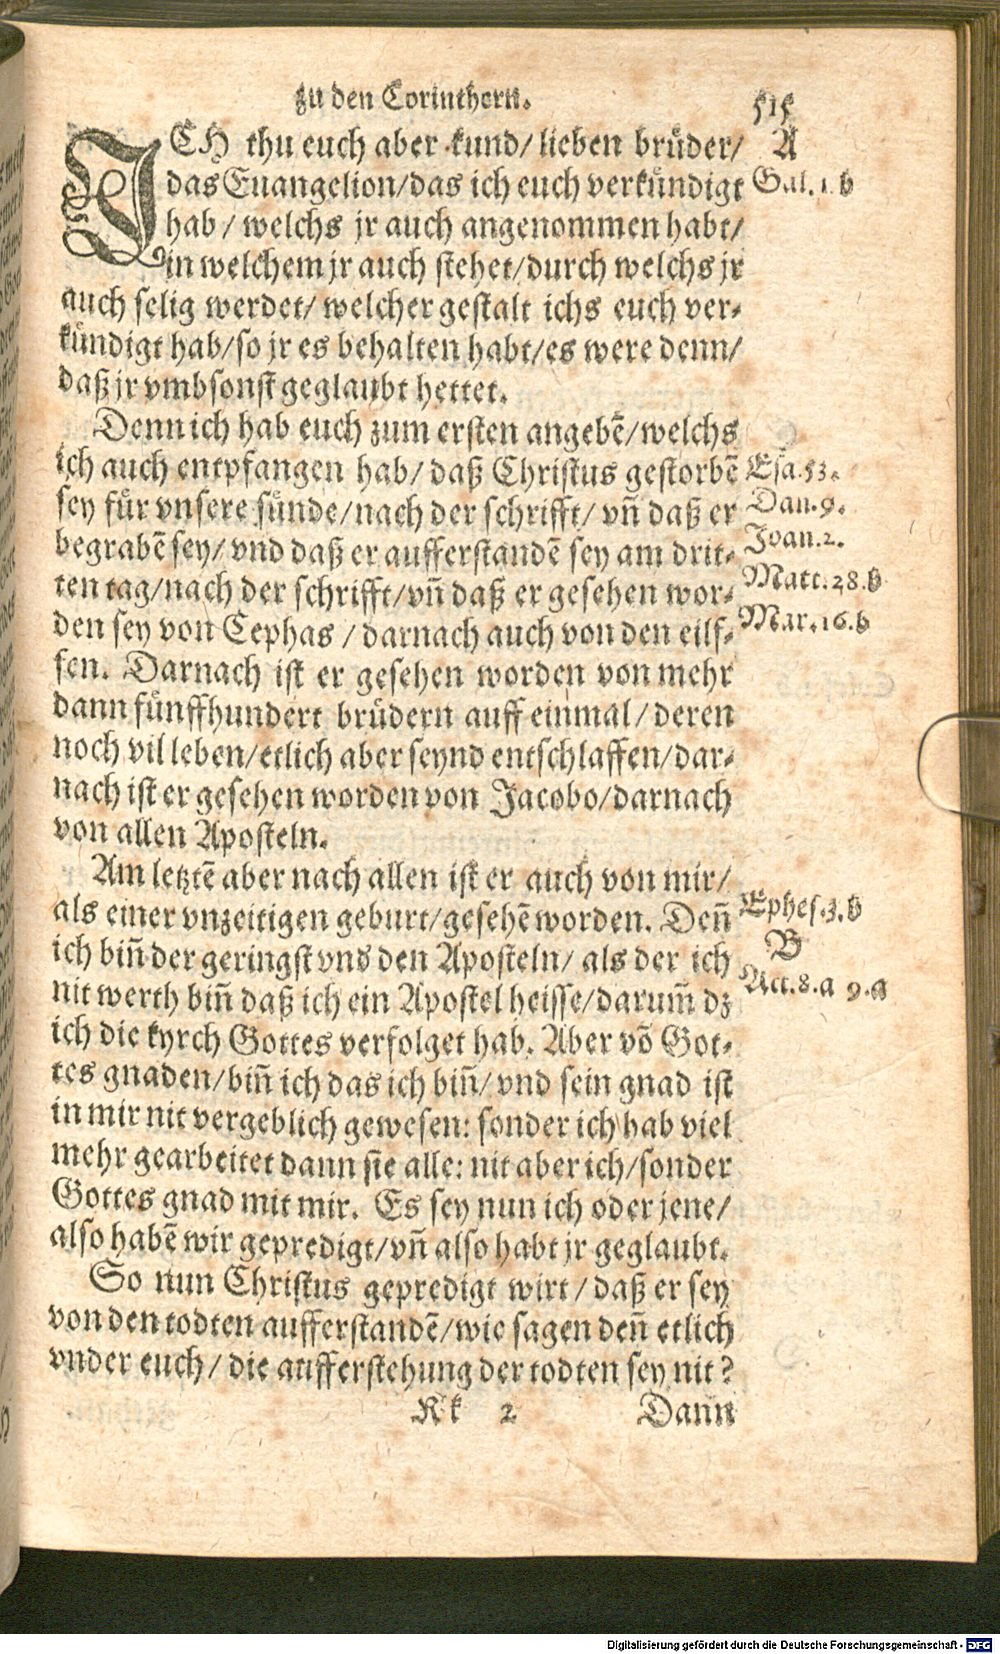 zu den Corinthern.
515
ICH thu euch aber kund/ lieben brüder/
A
das Euangelion/das ich euch verkündigt
Gal. 1. b
hab/ welchs jr auch angenommen habt/
in welchem jr auch stehet/durch welchs jr
auch selig werdet/ welcher gestalt ichs euch ver-
kündigt hab/so jr es behalten habt/es were denn/
daß jr vmbsonst geglaubt hettet.
Denn ich hab euch zum ersten angebē/welchs
ich auch entpfangen hab/ daß Christus gestorbē
Esa.53.
sey für vnsere sünde/nach der schrifft/ vñ daß er
Dan.9.
begrabē sey/ vnd daß er aufferstandē sey am drit-
Joan.2.
ten tag/nach der schrifft/vñ daß er gesehen wor-
Matt.28.b
den sey von Cephas / darnach auch von den eilf-
Mar.16.b
fen. Darnach ist er gesehen worden von mehr
dann fünffhundert brüdern auff einmal/ deren
noch vil leben/etlich aber seynd entschlaffen/dar-
nach ist er gesehen worden von Jacobo/darnach
von allen Aposteln.
Am letztē aber nach allen ist er auch von mir/
als einer vnzeitigen geburt/gesehē worden. Deñ
Ephes.3.b
ich biñ der geringst vnd den Aposteln/ als der ich
B
nit werth biñ daß ich ein Apostel heisse/darum̃ dz
Act.8.a 9.a
ich die kyrch Gottes verfolget hab. Aber vō Got-
tes gnaden/biñ ich das ich biñ/ vnd sein gnad ist
in mir nit vergeblich gewesen: sonder ich hab viel
mehr gearbeitet dann sie alle: nit aber ich/sonder
Gottes gnad mit mir. Es sey nun ich oder jene/
also habē wir gepredigt/vñ also habt jr geglaubt.
So nun Christus gepredigt wirt/ daß er sey
von den todten aufferstandē/wie sagen deñ etlich
vnder euch/ die aufferstehung der todten sey nit?
Kk 2
Dann
Digitalisierung gefördert durch die Deutsche Forschungsgemeinschaft - DFG